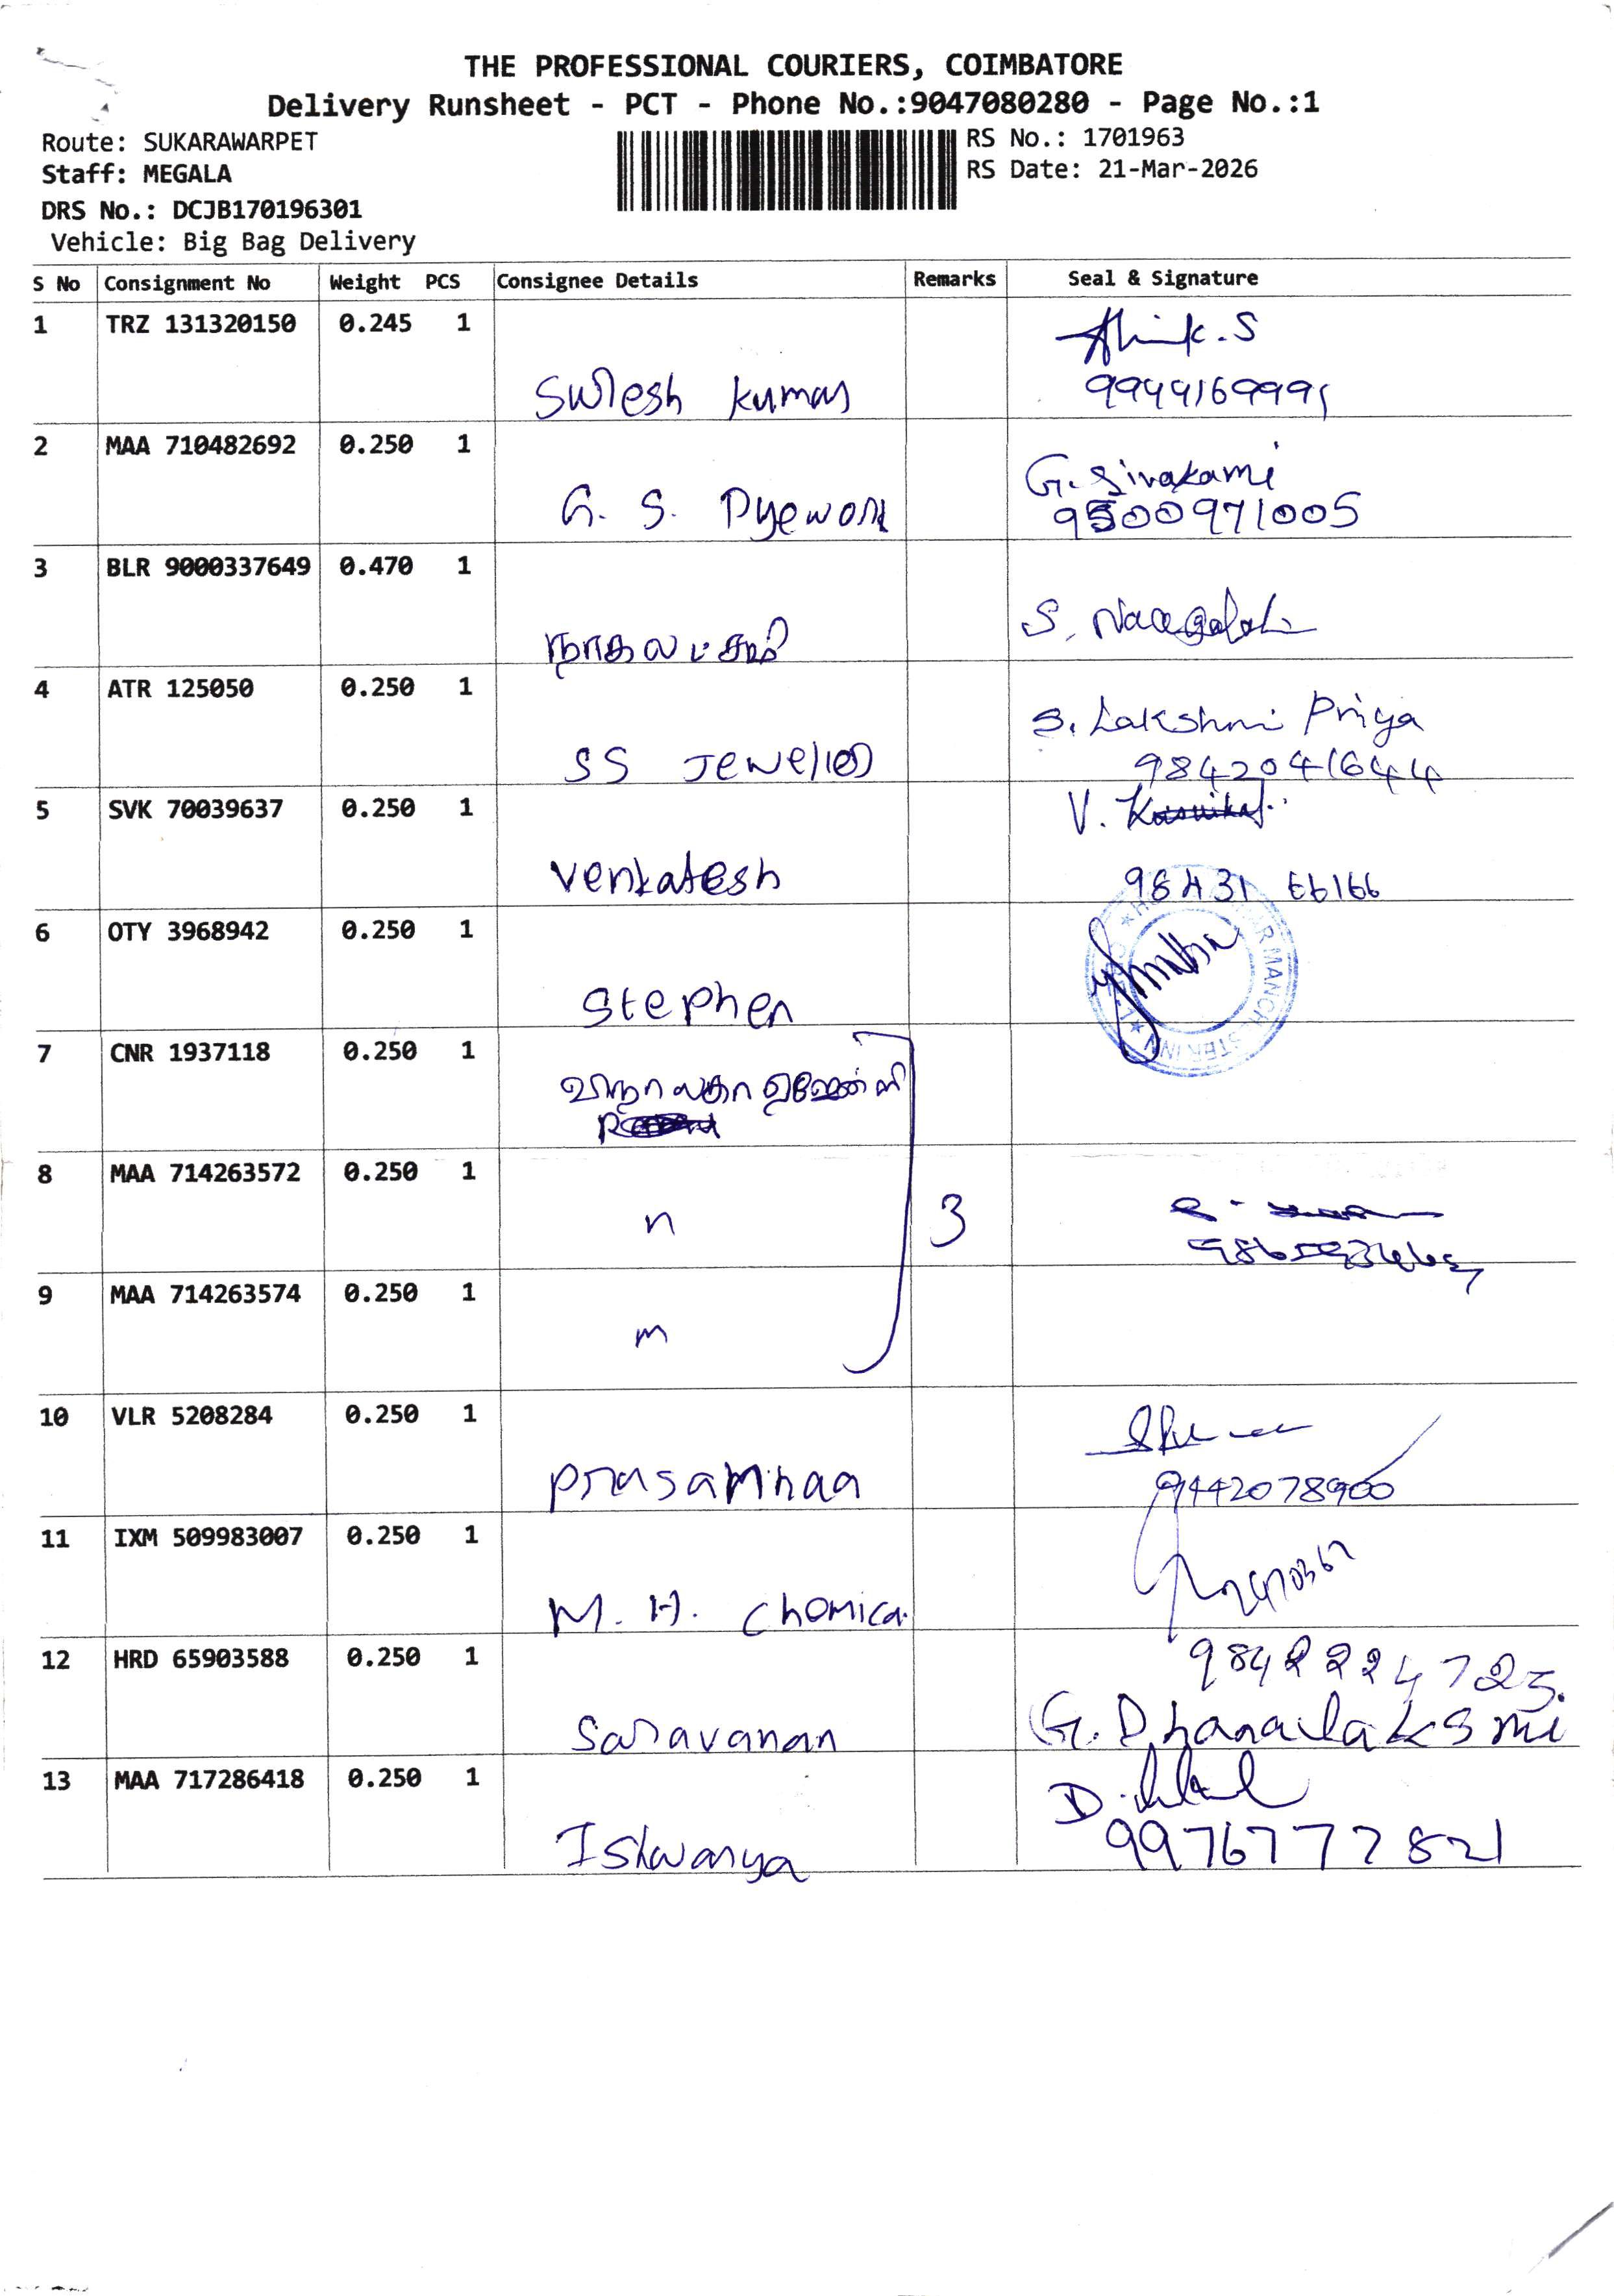 THE PROFESSIONAL COURIERS, COIMBATORE
Delivery Runsheet - PCT - Phone No.:9047080280 - Page No.:1
Route: SUKARAWARPET
RS No.: 1701963
Staff: MEGALA
RS Date: 21-Mar-2026
DRS No.: DCJB170196301
Vehicle: Big Bag Delivery
S No Consignment No Weight PCS Consignee Details Remarks Seal & Signature
1 TRZ 131320150 0.245 1
Suresh Kumar
2 MAA 710482692 0.250 1
G. Sivakami
G. S. Dyework 9500971005
3 BLR 9000337649 0.470 1
நாகலட்சுமி S.
4 ATR 125050 0.250 1
S. Lakshmi Priya
SS Jewellers 98420 41644
5 SVK 70039637 0.250 1
V.
Venkatesh 98431 66166
6 OTY 3968942 0.250 1
Stephen
7 CNR 1937118 0.250 1
8 MAA 714263572 0.250 1
3
9 MAA 714263574 0.250 1
10 VLR 5208284 0.250 1
Prasannaa 9442078900
11 IXM 509983007 0.250 1
M. H. Chemical
12 HRD 65903588 0.250 1
9842224725.
Saravanan G. Dhanalaksmi
13 MAA 717286418 0.250 1
D.
Ishwarya 9976777821